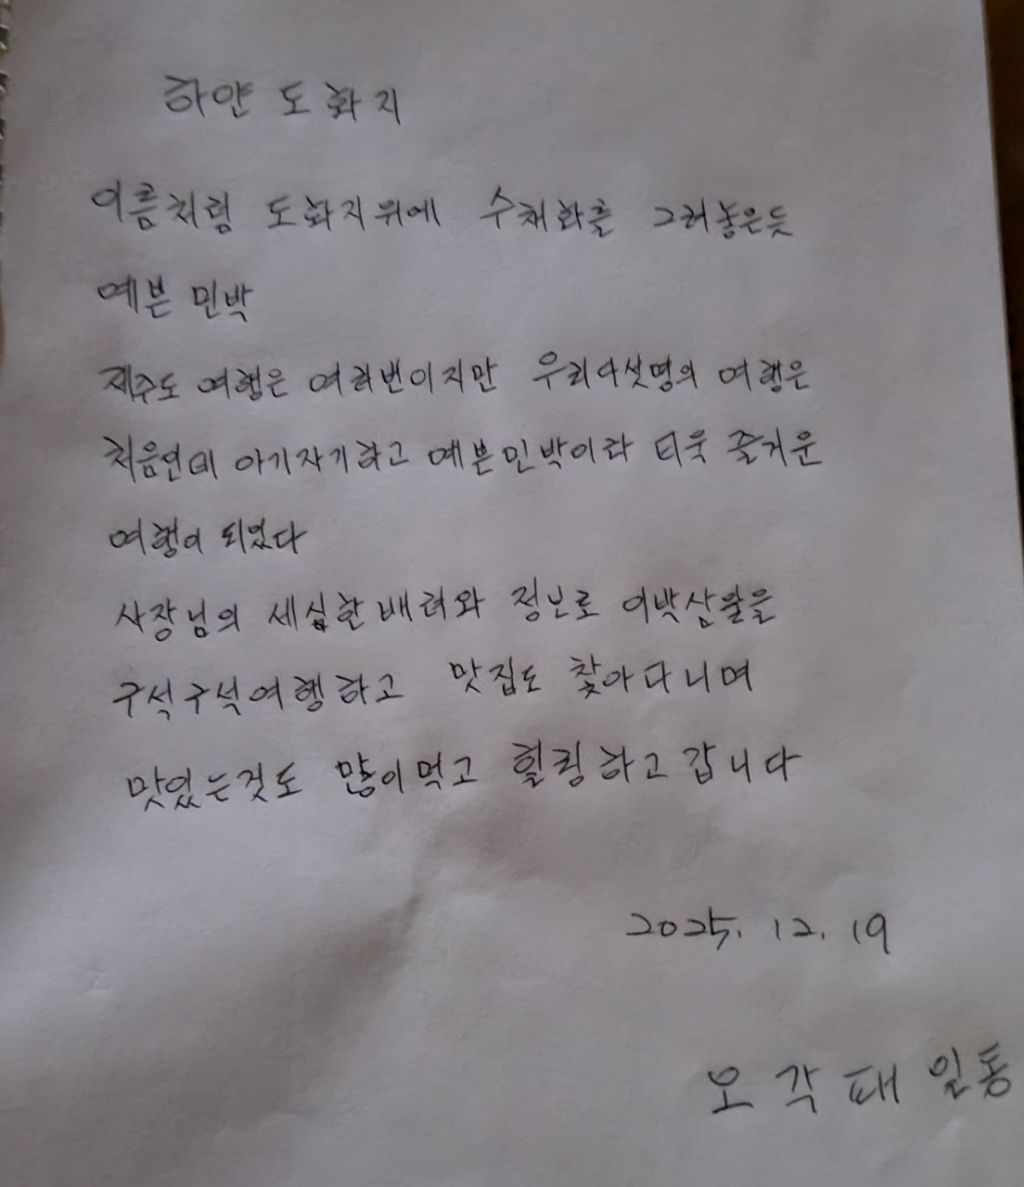 하얀 도화지
이름처럼 도화지위에 수채화를 그려놓은듯
예쁜 민박
제주도 여행은 여러번이지만 우리다섯명의 여행은
처음인데 아기자기하고 예쁜민박이라 더욱 즐거운
여행이 되었다
사장님의 세심한배려와 정보로 이박삼일을
구석구석여행하고 맛집도 찾아다니며
맛있는것도 많이먹고 힐링하고갑니다
2025. 12. 19
오각패 일동